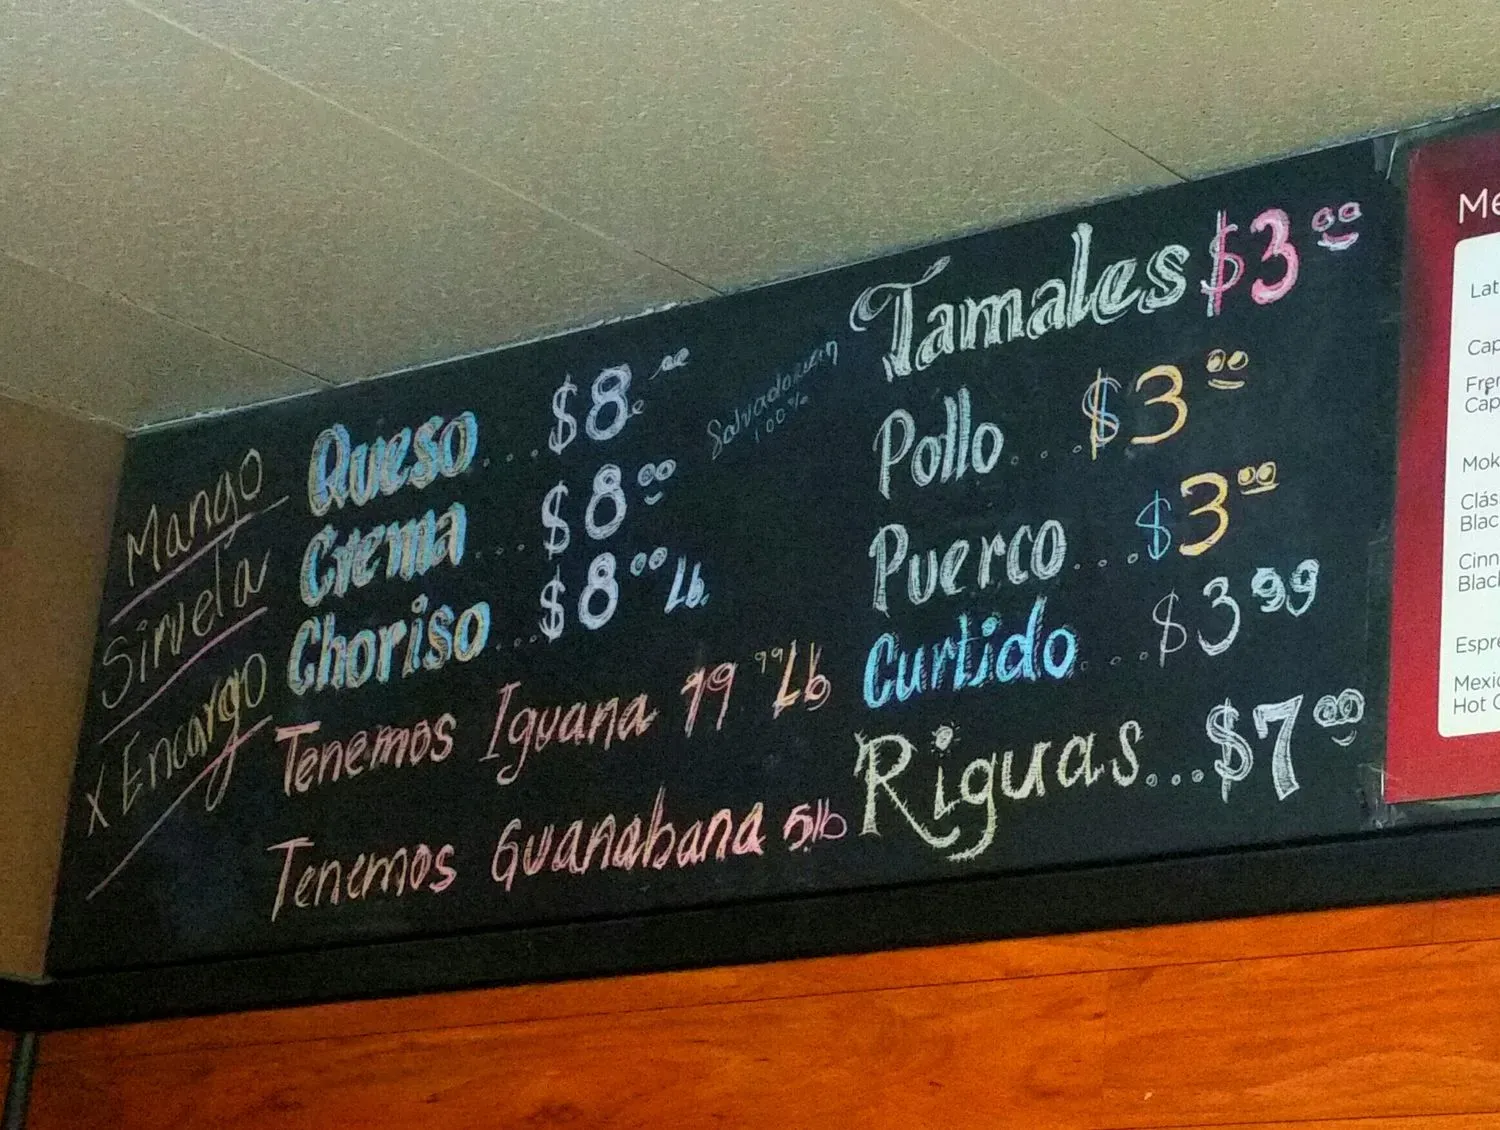 Mango
Siruela
x Encargo
Queso ... $8.00
Crema ... $8.00
Choriso ... $8.00 Lb.
Tenemos Iguana 19.99 Lb
Tenemos Guanabana 5lb
100%
Tamales $3.00
Pollo ... $3.00
Puerco ... $3.00
Curtido ... $3.99
Riguas ... $7.00
Me
Lat
Cap
Cap
Mok
Clás
Blac
Cinn
Blac
Espre
Hot C